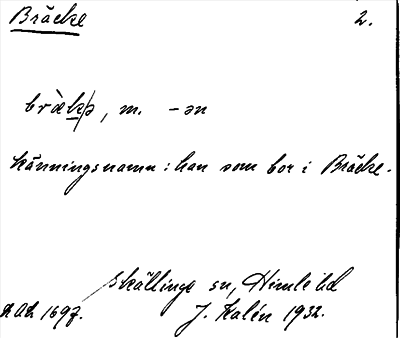 Bräcke 2.
bràkə, m. -ən
känningsnamn: han som bor i Bräcke.
Skällinge sn, Himle hd
J. Kalén 1932.